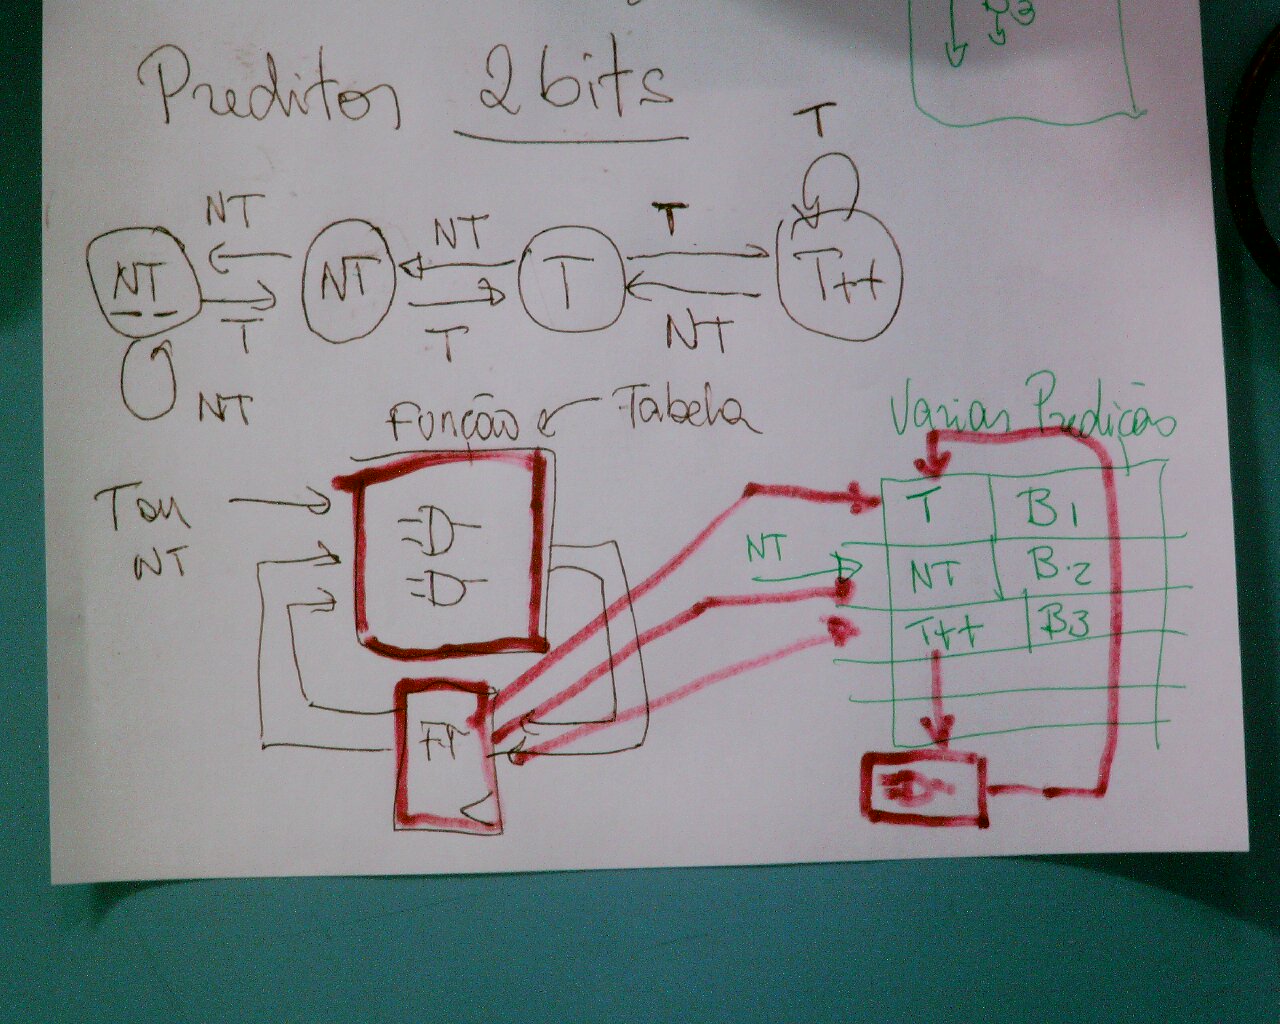 Preditor 2 bits
T
NT NT T
NT -- NT T T++
T T NT
NT
Função Tabela
Varias Predição
T ou
NT
NT
T B1
NT B2
T++ B3